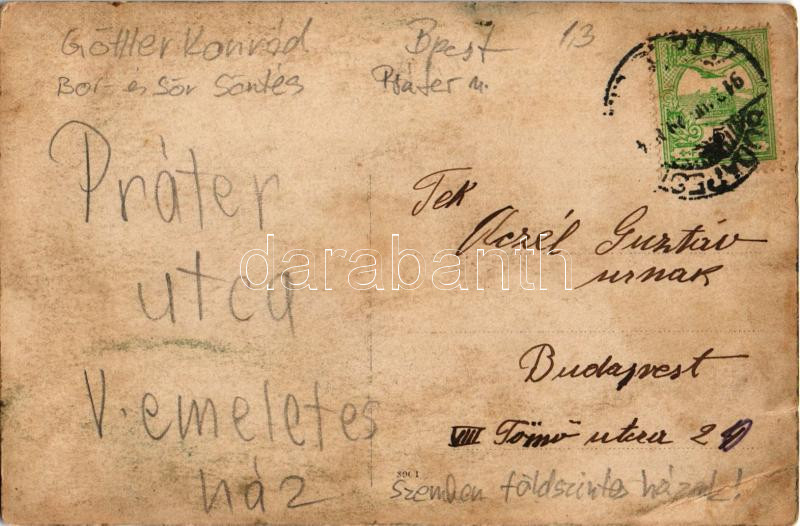 Göttler Konrád Bpest 13
Bor- és Sör Söntés Práter u.
BUDAPEST
Práter
utca
V. emeletes
ház
Tek
Aczél Gusztáv
urnak
Budapest
VIII Tömő utcza 2
szemben földszintes házak!
darabanth